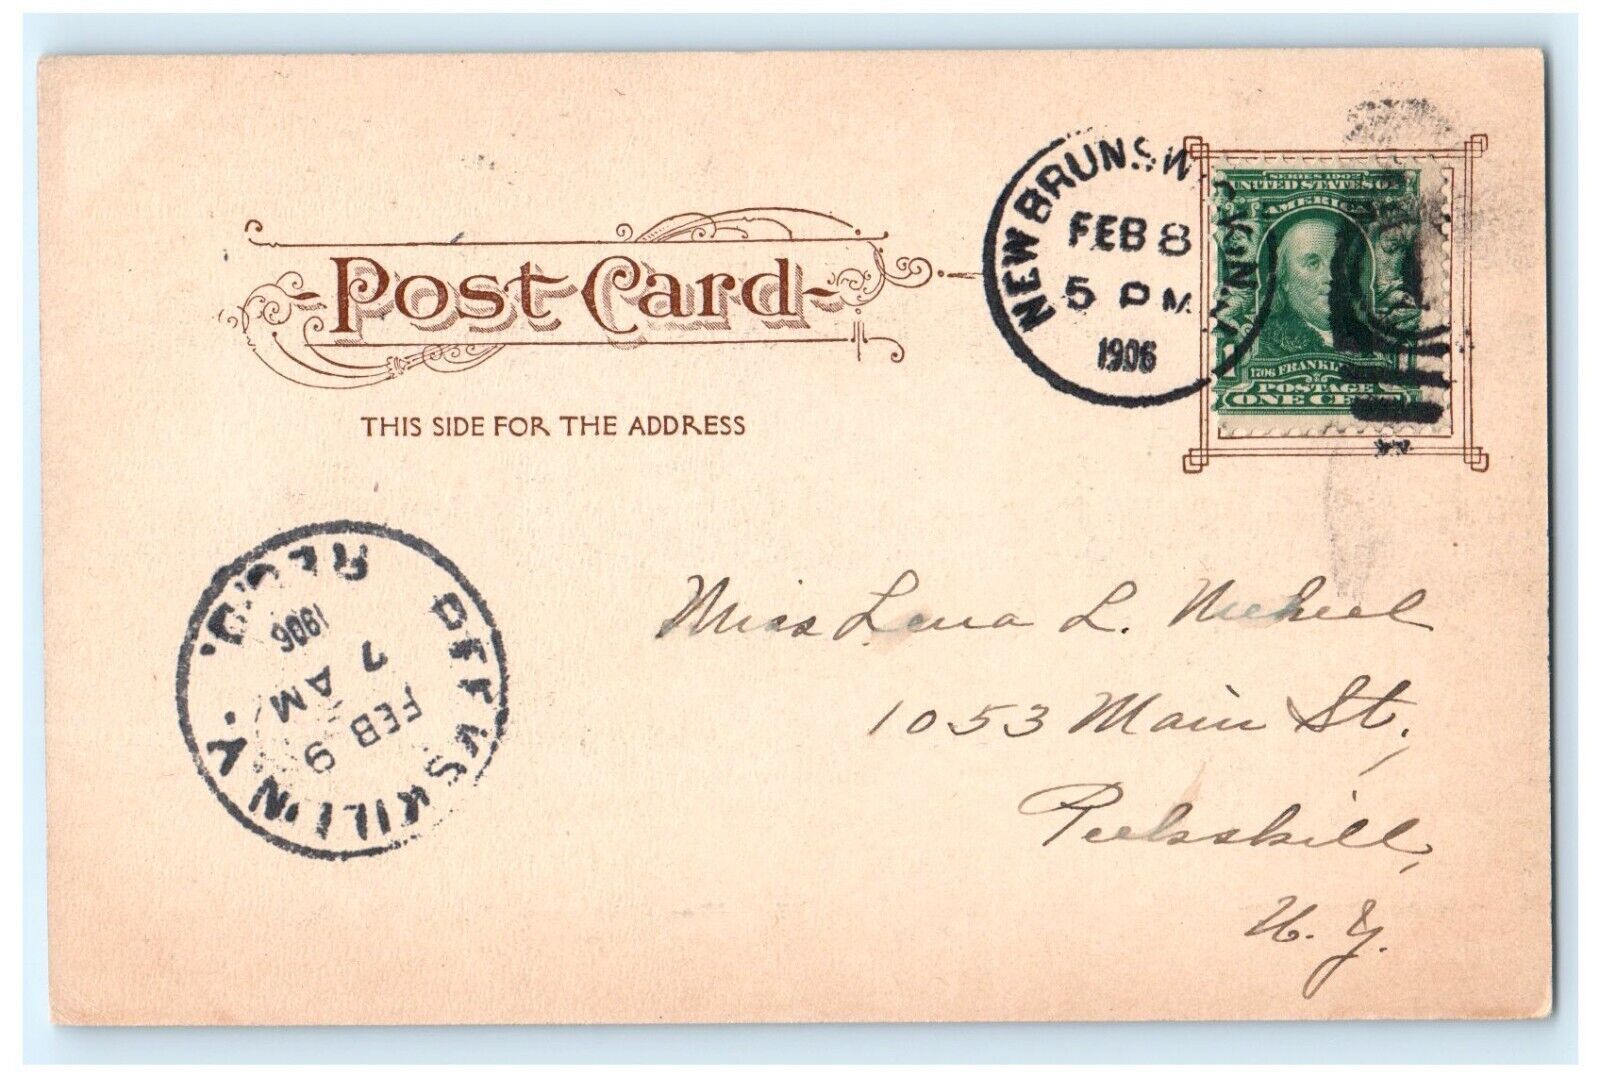 Post Card
THIS SIDE FOR THE ADDRESS
NEW BRUNSWICK, N.J.
FEB 8
5 PM
1906
SERIES 1902
UNITED STATES OF
AMERICA
1706 FRANKLIN
POSTAGE
ONE CENT
PEEKSKILL N.Y.
REC'D.
1906
7 AM
FEB 9
Miss Lena L.
1053 Main St.,
Peekskill,
N. Y.